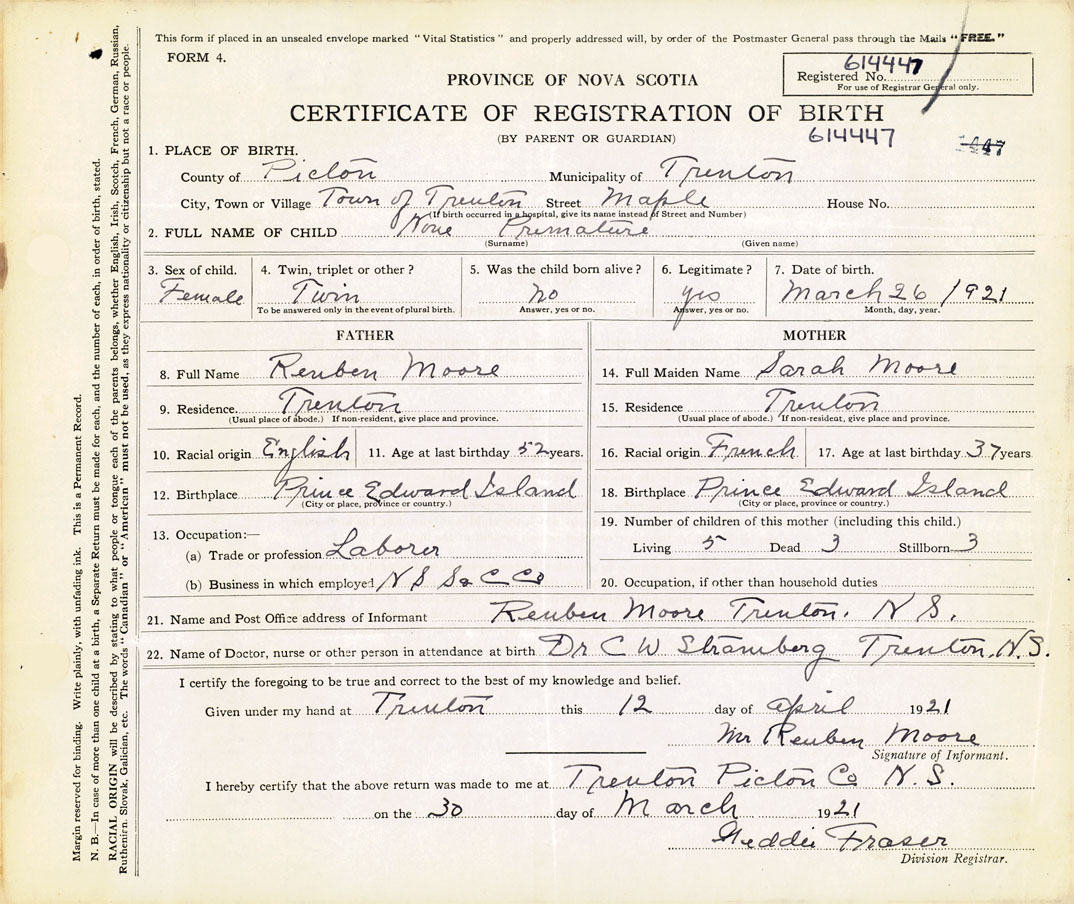 This form if placed in an unsealed envelope marked "Vital Statistics" and properly addressed will, by order of the Postmaster General pass through the Mails "FREE."
FORM 4.
614447
Registered No.
For use of Registrar General only.
PROVINCE OF NOVA SCOTIA
CERTIFICATE OF REGISTRATION OF BIRTH
(BY PARENT OR GUARDIAN)
614447
1. PLACE OF BIRTH.
County of Picton Municipality of Trenton
City, Town or Village Town of Trenton Street Maple House No.
(If birth occurred in a hospital, give its name instead of Street and Number)
2. FULL NAME OF CHILD None Premature
(Surname) (Given name)
3. Sex of child. Female
4. Twin, triplet or other? Twin
To be answered only in the event of plural birth.
5. Was the child born alive? no
Answer, yes or no.
6. Legitimate? yes
Answer, yes or no.
7. Date of birth. March 26 / 1921
Month, day, year.
FATHER
8. Full Name Reuben Moore
9. Residence. Trenton
(Usual place of abode.) If non-resident, give place and province.
10. Racial origin English 11. Age at last birthday 52 years.
12. Birthplace Prince Edward Island
(City or place, province or country.)
13. Occupation:—
(a) Trade or profession Laborer
(b) Business in which employed N S S & C Co
MOTHER
14. Full Maiden Name Sarah Moore
15. Residence Trenton
(Usual place of abode.) If non-resident, give place and province.
16. Racial origin French 17. Age at last birthday 37 years
18. Birthplace Prince Edward Island
(City or place, province or country.)
19. Number of children of this mother (including this child.)
Living 5 Dead 3 Stillborn 3
20. Occupation, if other than household duties
21. Name and Post Office address of Informant Reuben Moore Trenton. N S.
22. Name of Doctor, nurse or other person in attendance at birth Dr C W Stramberg Trenton. N.S.
I certify the foregoing to be true and correct to the best of my knowledge and belief.
Given under my hand at Trenton this 12 day of april 1921
Mr Reuben Moore
Signature of Informant.
I hereby certify that the above return was made to me at Trenton Picton Co N.S.
on the 30 day of March 1921
Geddie Fraser
Division Registrar.
Margin reserved for binding. Write plainly, with unfading ink. This is a Permanent Record.
N. B.—In case of more than one child at a birth, a Separate Return must be made for each, and the number of each, in order of birth, stated.
RACIAL ORIGIN will be described by stating to what people or tongue each of the parents belongs, whether English, Irish, Scotch, French, German, Russian,
Ruthenian, Slovak, Galician, etc. The words "Canadian" or "American" must not be used, as they express nationality or citizenship but not a race or people.